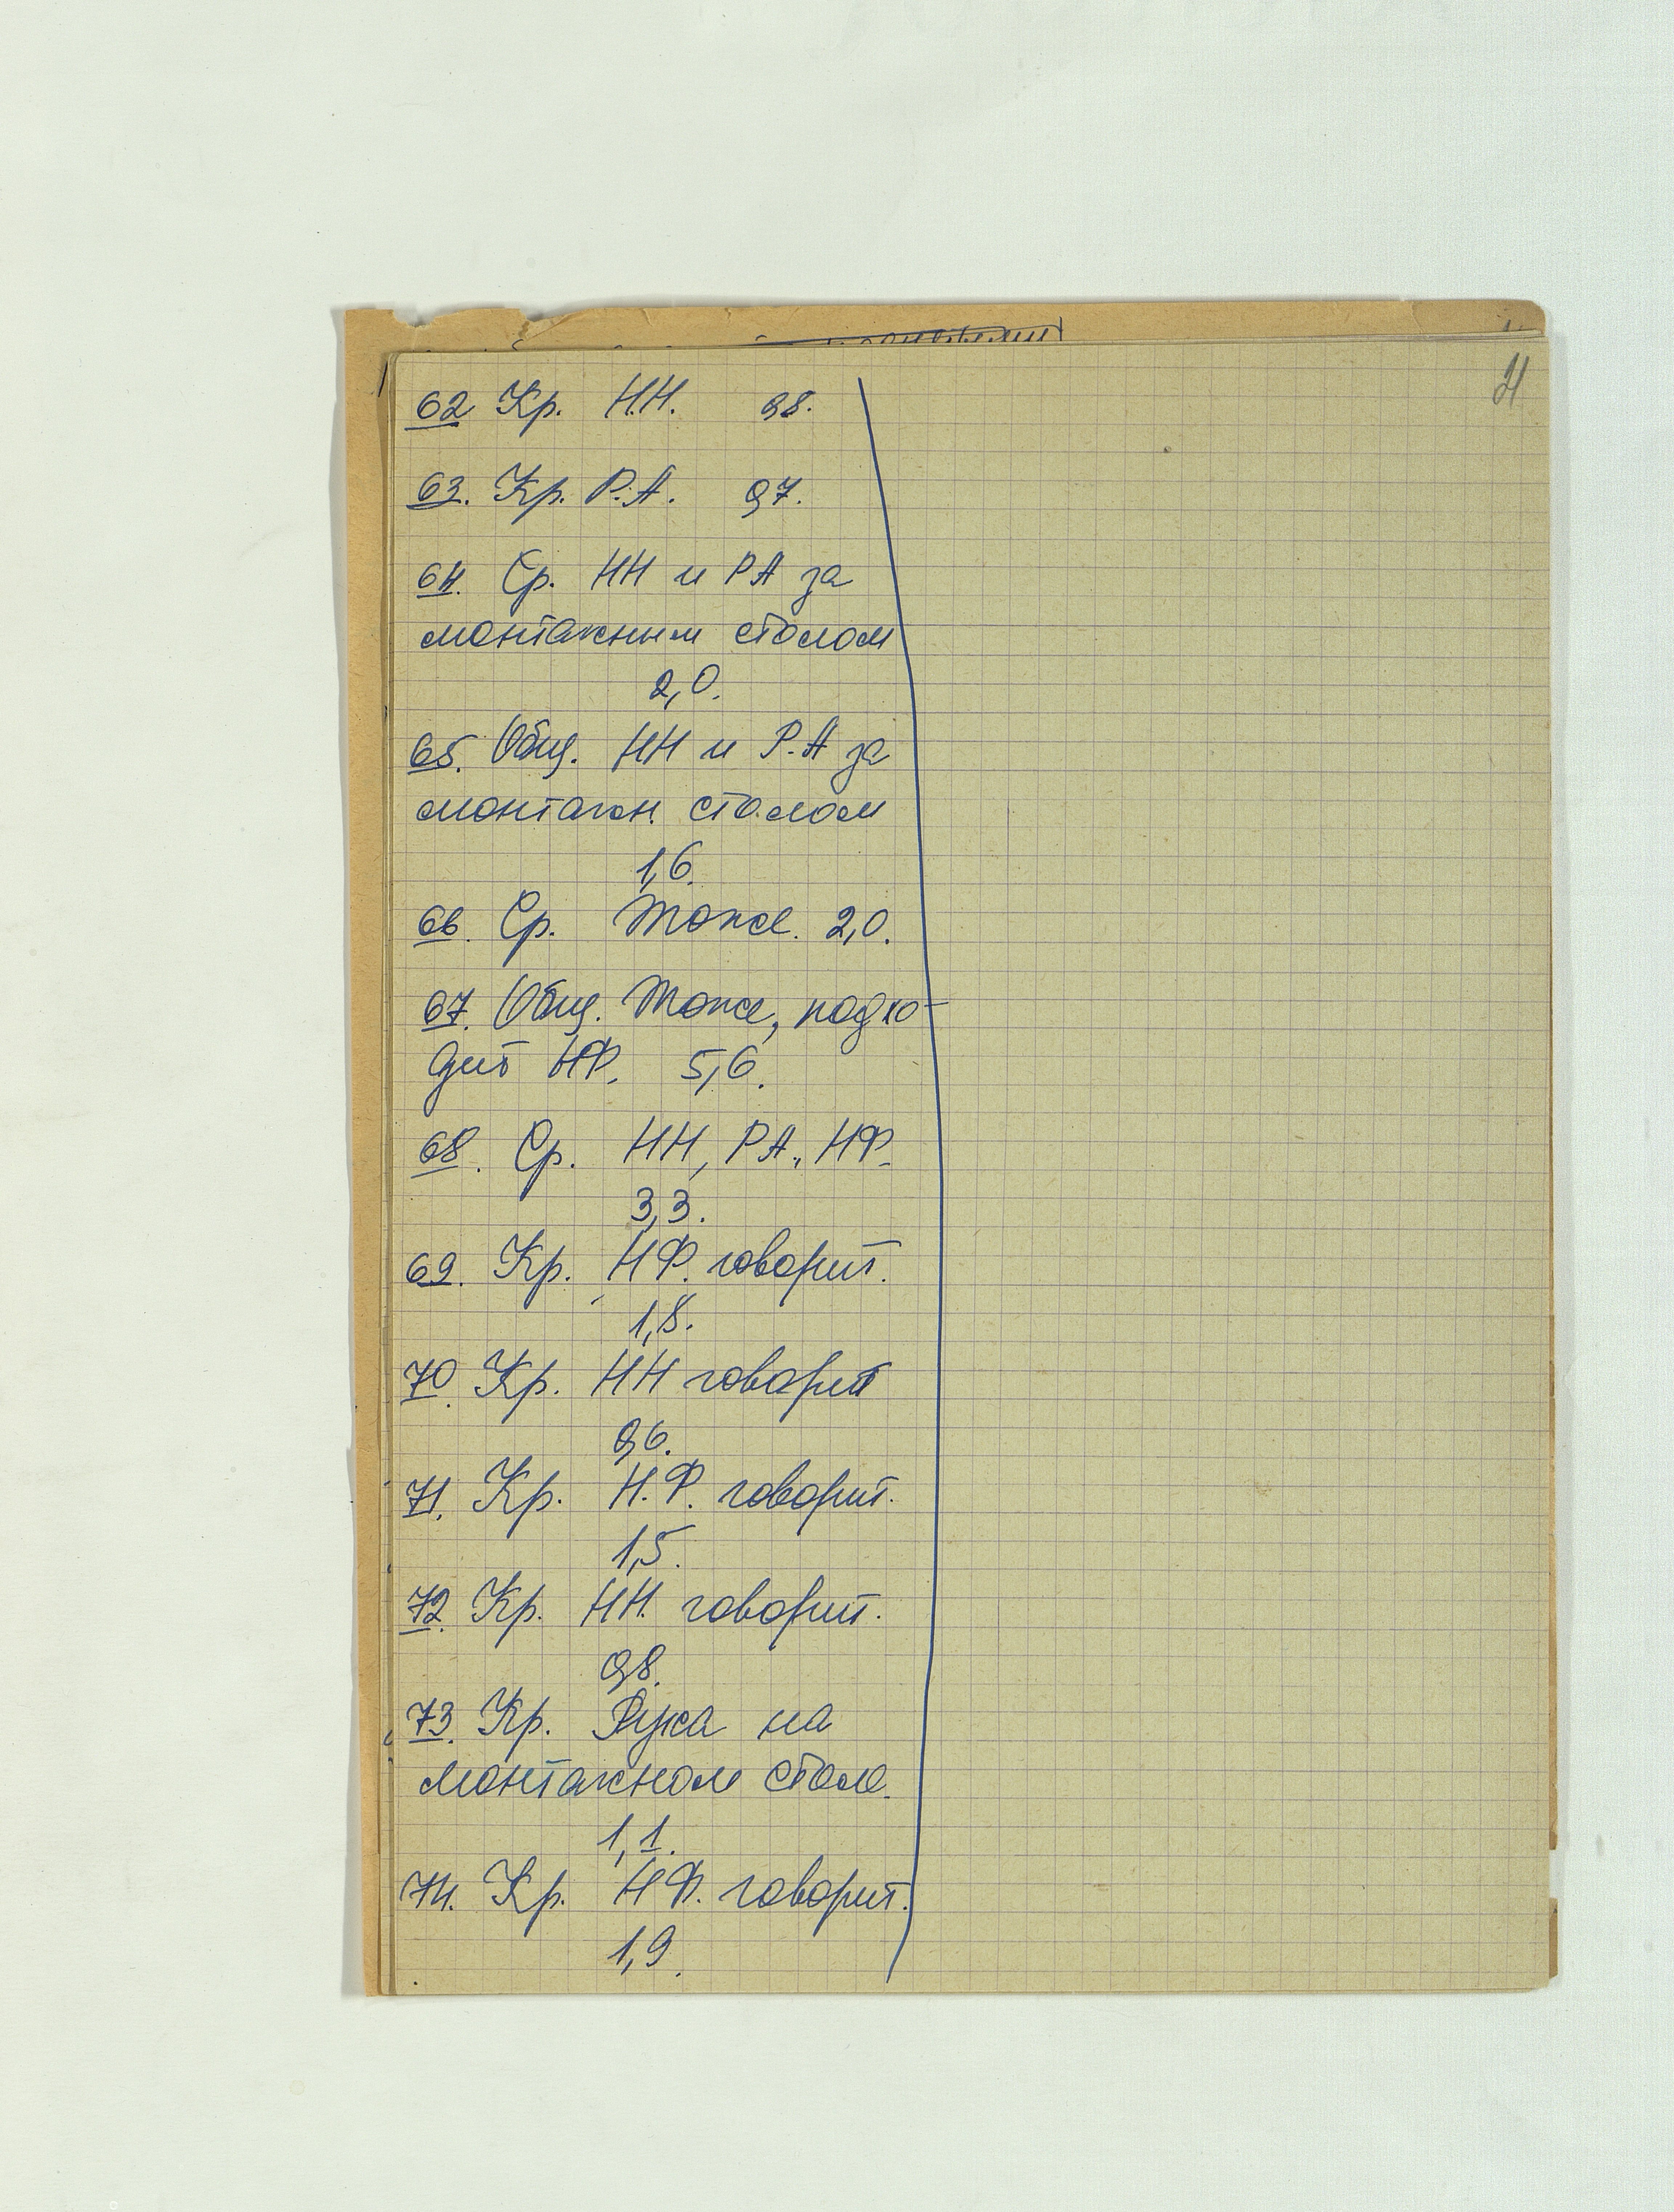 21
62 Кр. Н.Н. 0,8.
63. Кр. Р.А. 0,7.
64. Ср. НН и РА за
монтажным столом
2,0.
65. Общ. НН и Р.А за
монтажн. столом
1,6.
66. Ср. Тоже. 2,0.
67. Общ. Тоже, подхо-
дит НФ. 5,6.
68. Ср. НН, РА., НФ.
3,3.
69. Кр. НФ. говорит.
1,8.
70. Кр. НН говорит
0,6.
71. Кр. Н.Ф. говорит.
1,5.
72. Кр. НН. говорит.
0,8.
73. Кр. Рука на
монтажном столе.
1,1.
74. Кр. НФ. говорит.
1,9.